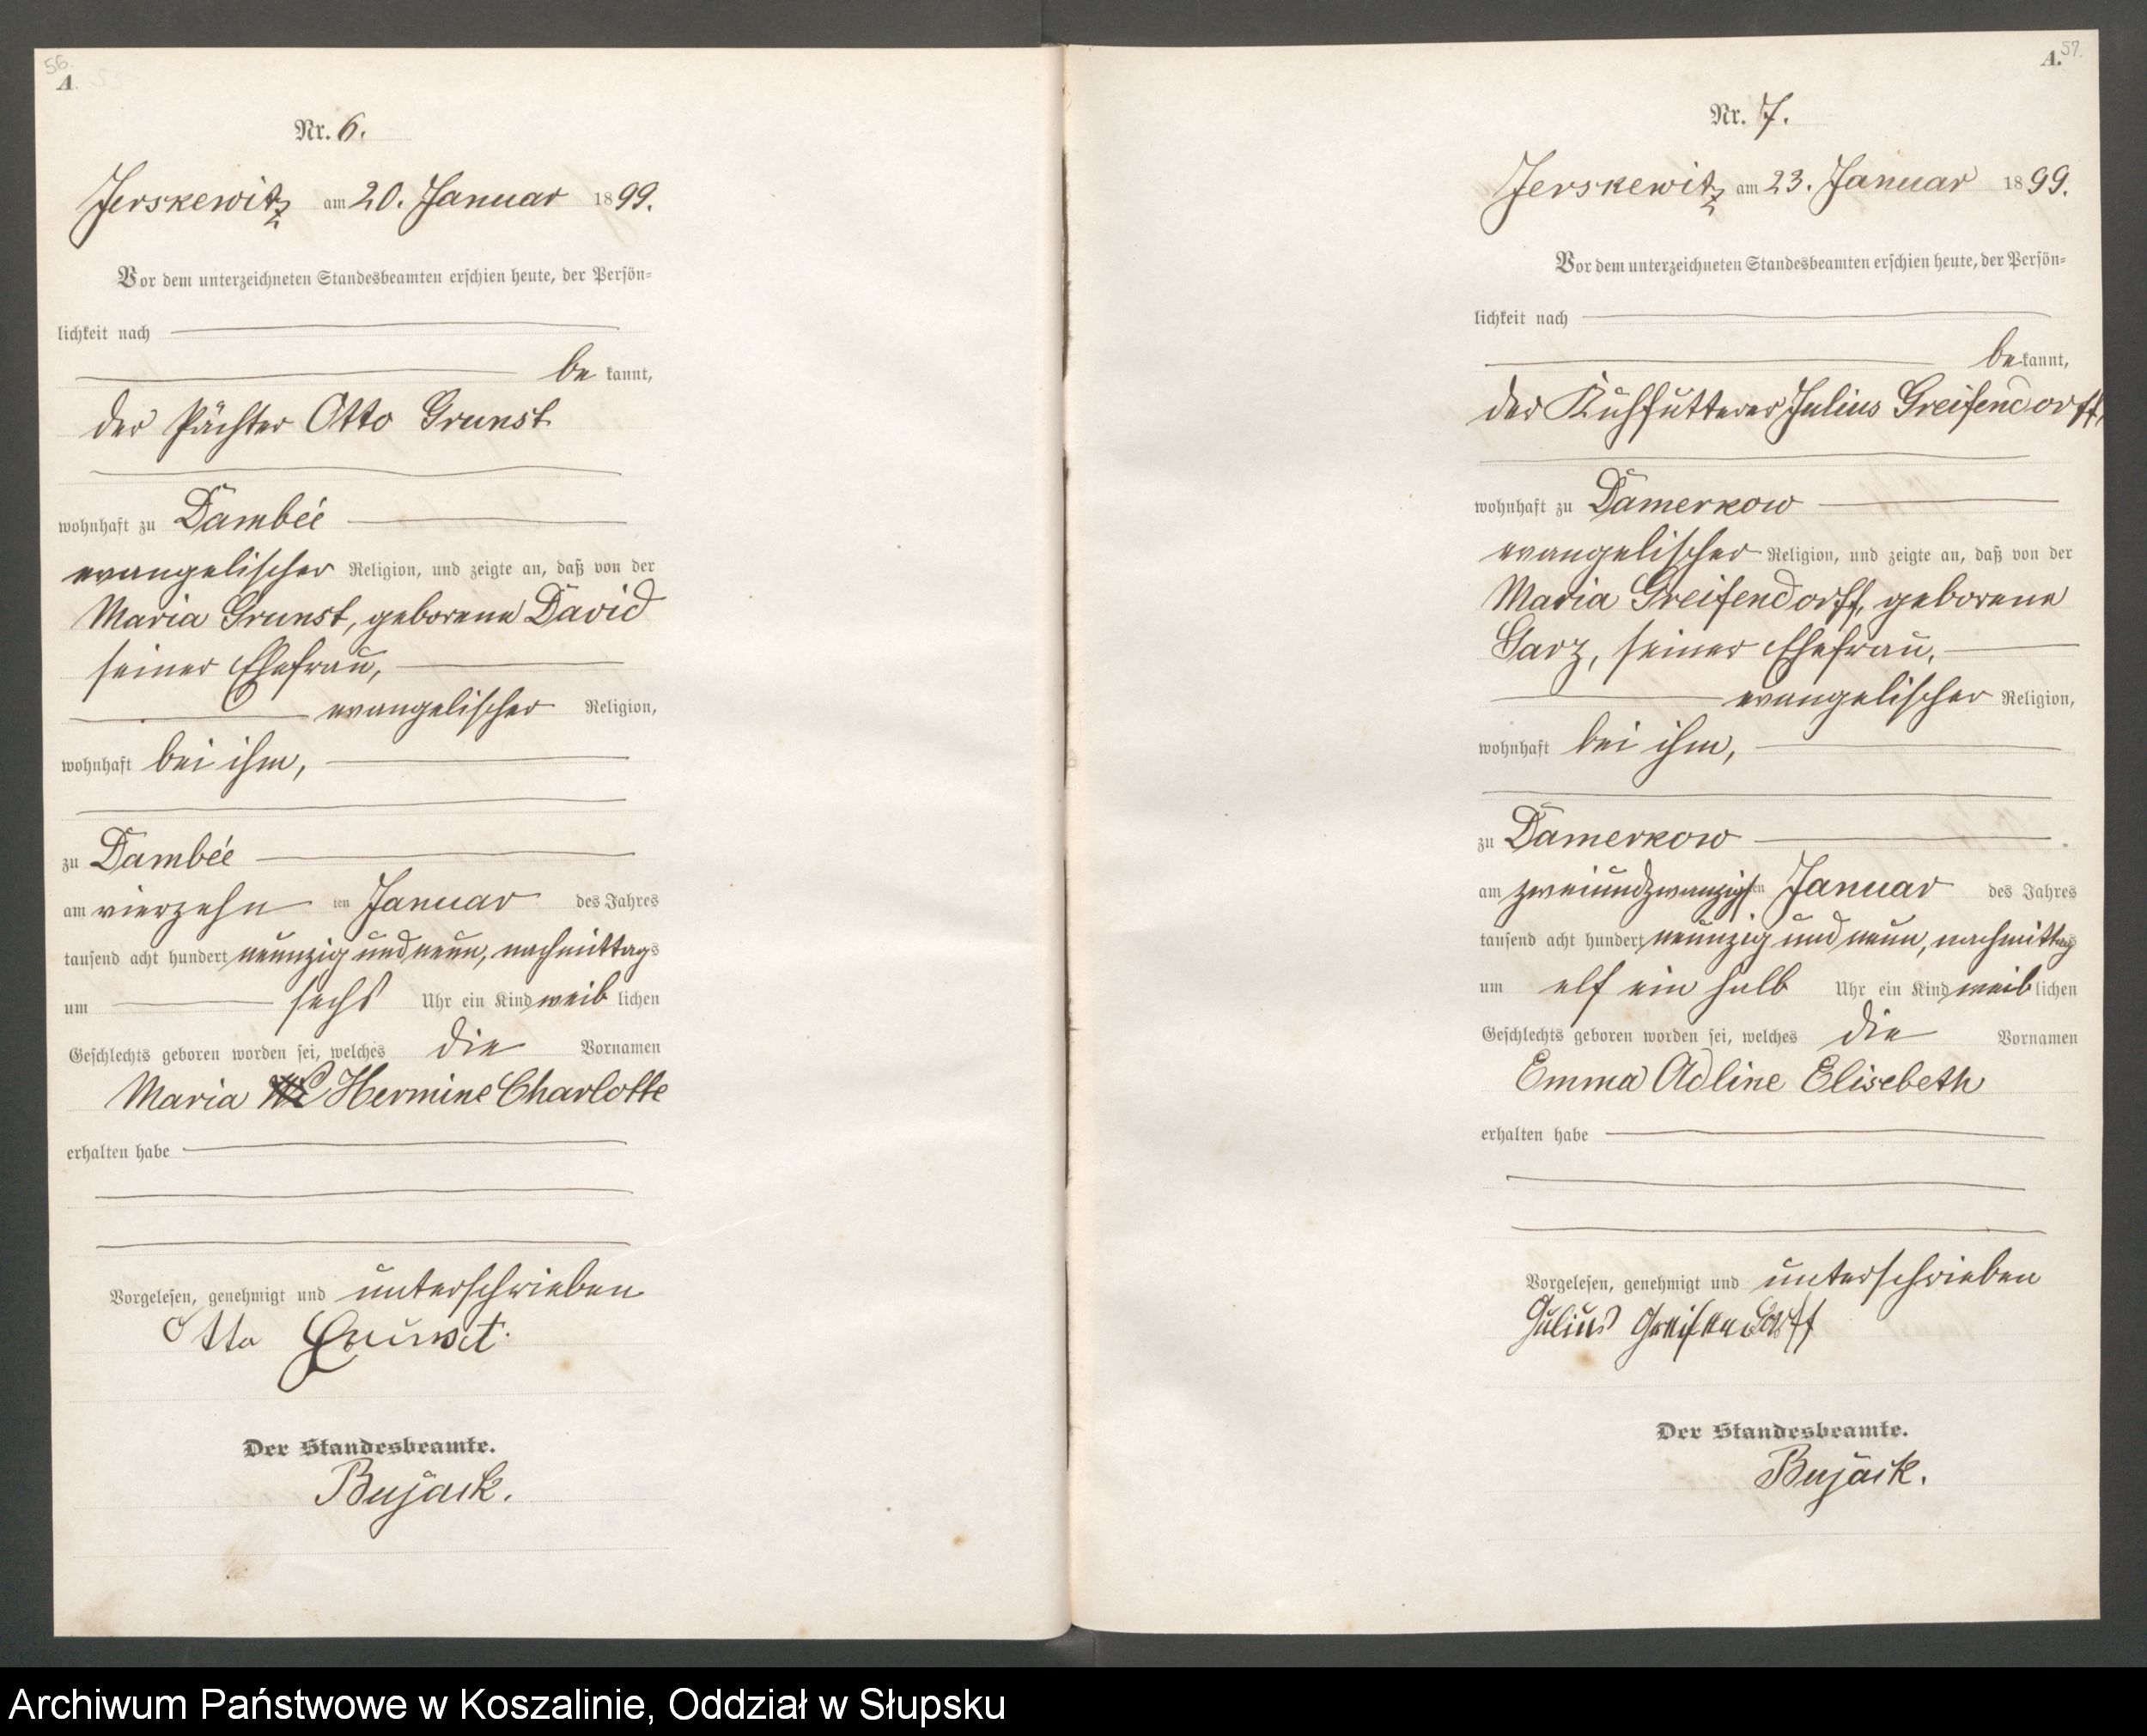 56.
A.
Nr. 6.
Jerskewitz am 20. Januar 1899.
Vor dem unterzeichneten Standesbeamten erschien heute, der Persön=
lichkeit nach
be kannt,
der Pächter Otto Grunst
wohnhaft zu Dambée
evangelischer Religion, und zeigte an, daß von der
Maria Grunst, geborene David
seiner Ehefrau,
evangelischer Religion,
wohnhaft bei ihm,
zu Dambée
am vierzehn ten Januar des Jahres
tausend acht hundert neunzig und neun, nachmittags
um sechs Uhr ein Kind weib lichen
Geschlechts geboren worden sei, welches die Vornamen
Maria Hermine Charlotte
erhalten habe
Vorgelesen, genehmigt und unterschrieben
Otto Grunst.
Der Standesbeamte.
Bujack.
57.
A.
Nr. 7.
Jerskewitz am 23. Januar 1899.
Vor dem unterzeichneten Standesbeamten erschien heute, der Persön=
lichkeit nach
be kannt,
der Kuhfütterer Julius Greifendorff,
wohnhaft zu Damerkow
evangelischer Religion, und zeigte an, daß von der
Maria Greifendorff, geborene
Garz, seiner Ehefrau,
evangelischer Religion,
wohnhaft bei ihm,
zu Damerkow
am zweiundzwanzigsten Januar des Jahres
tausend acht hundert neunzig und neun, nachmittags
um elf ein halb Uhr ein Kind weib lichen
Geschlechts geboren worden sei, welches die Vornamen
Emma Adline Elisebeth
erhalten habe
Vorgelesen, genehmigt und unterschrieben
Julius Greifendorff
Der Standesbeamte.
Bujack.
Archiwum Państwowe w Koszalinie, Oddział w Słupsku